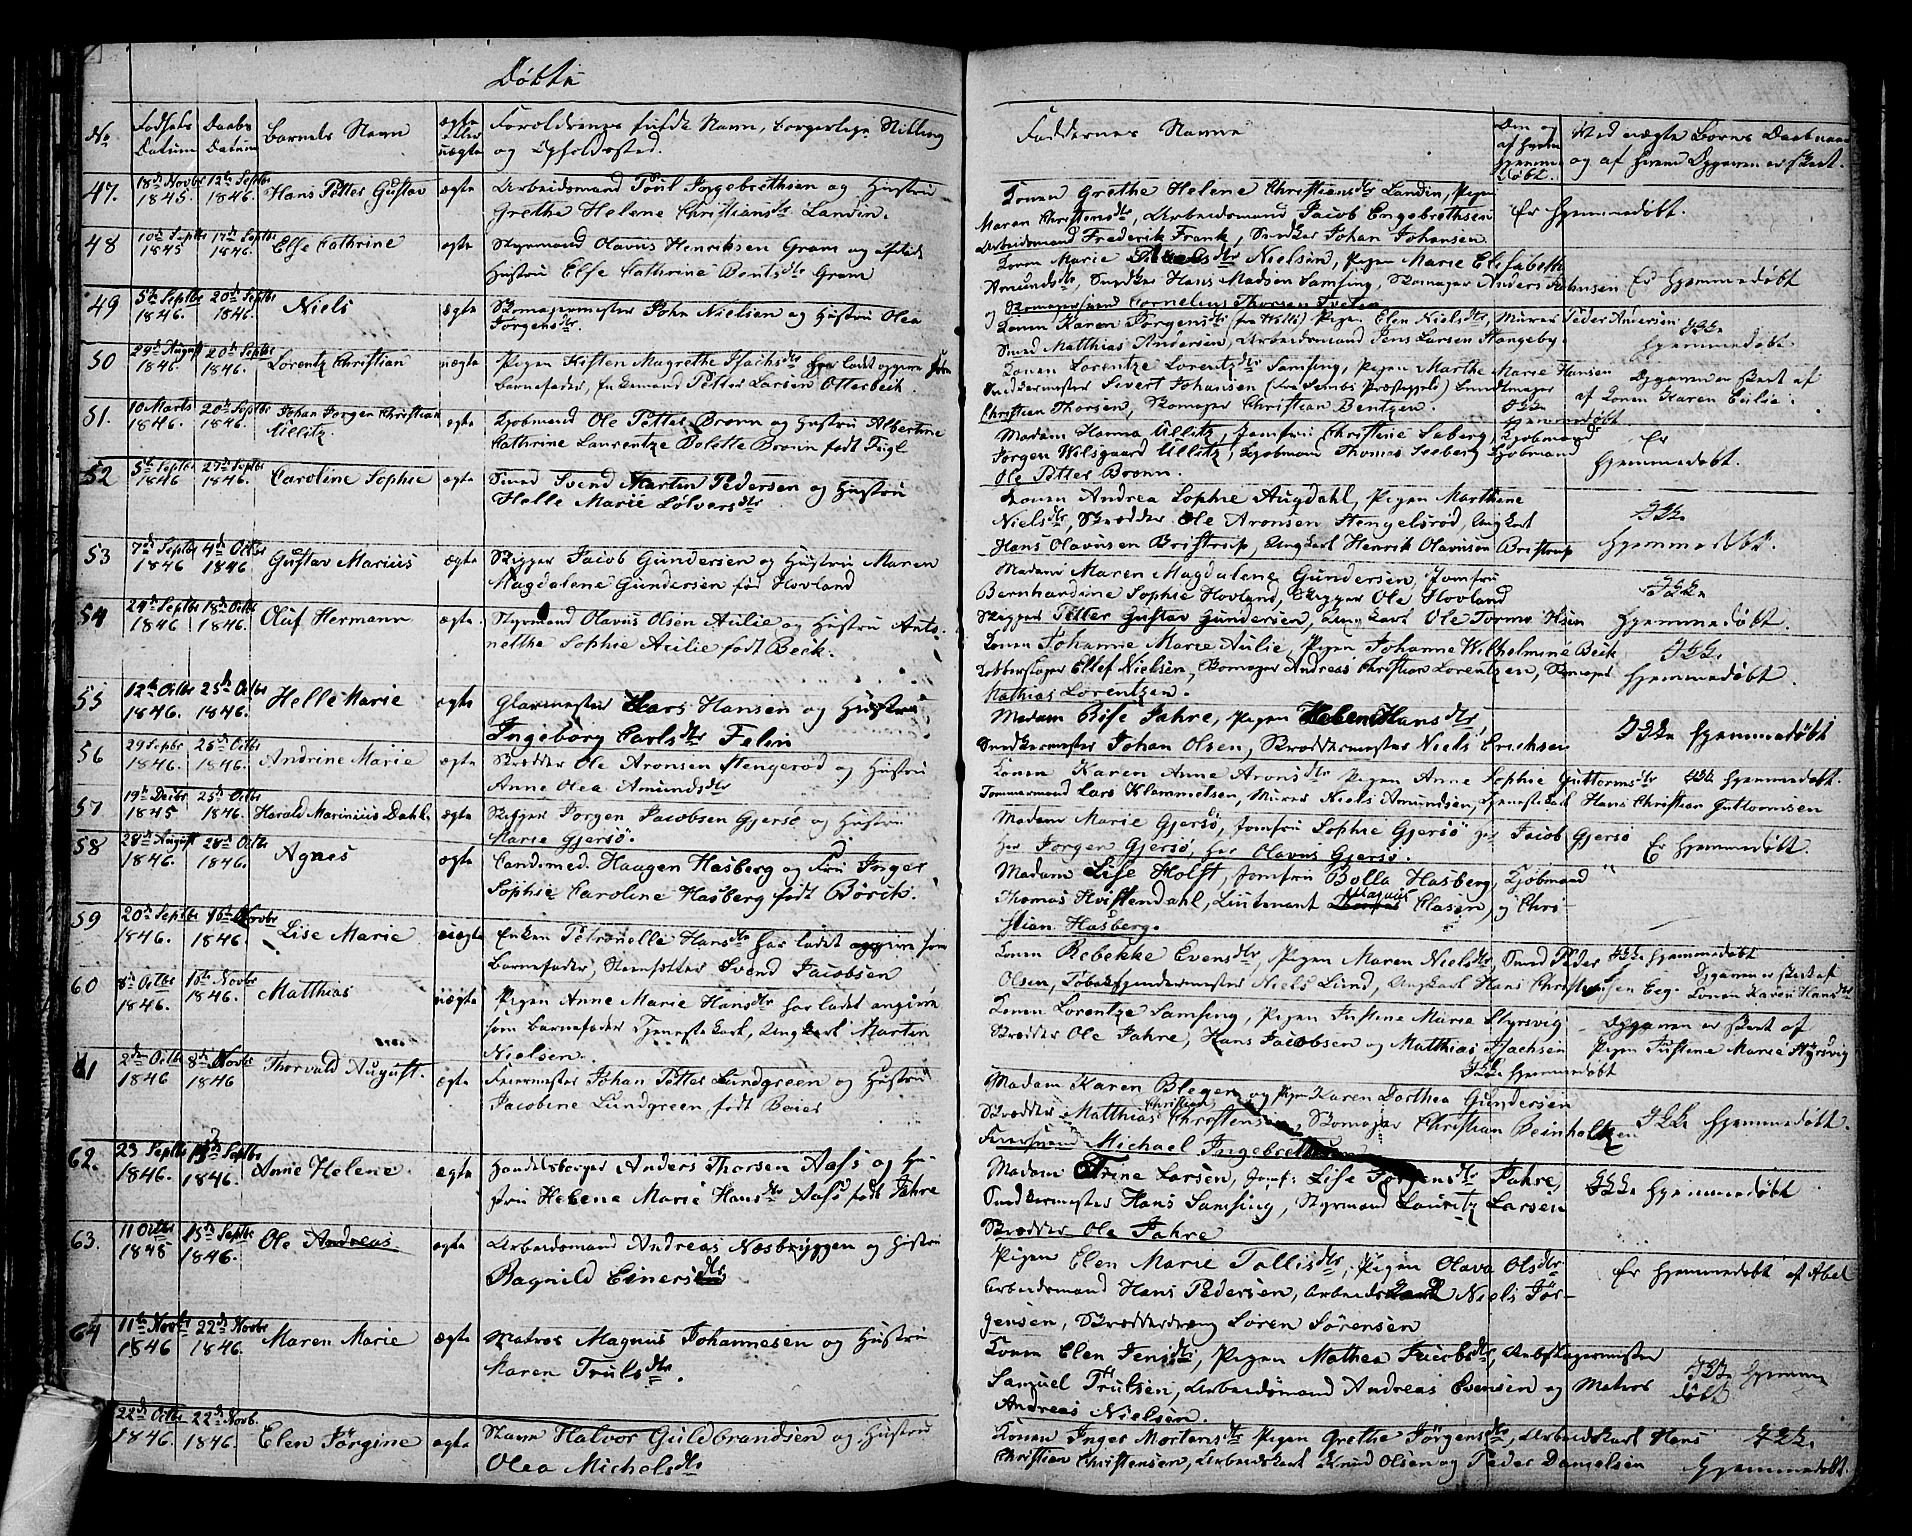 Døbte
No. Fødsels Datum Daabs Datum Barnets Navn ægte eller uægte Forældrenes fulde Navn, borgerlige Stilling og Opholdssted.
47. 18de Novbr 1845. 12te Septbr 1846. Hans Petter Gustav ægte Arbeidsmand Poul Ingebrethsen og Hustru
Grethe Helene Christiansdtr Landin.
48 10de Septbr 1845 17de Septbr 1846. Else Cathrine ægte Styrmand Olavus Henriksen Gram og afdøde
Hustru Else Cathrine Bentsdtr Gram
49 5te Septbr 1846. 20de Septbr 1846. Niels ægte Skomagermester John Nielsen og Hustru Olea
Jørgensdtr
50 29de August 1846. 20de Septbr 1846. Lorentz Christian uægte Pigen Kisten Magrethe Isachsdtr har ladet opgive som
Barnefader, Enkemand Petter Larsen Otterbeck.
51. 10 Marts 1846. 20de Septbr 1846. Johan Jørgen Christian Ullitz. ægte Kjøbmand Ole Petter Bronn og Hustru Albertine
Cathrine Laurentze Bolette Bronn født Feigl
52 5te Septbr 1846 27de Septbr 1846. Caroline Sophie ægte Smed Svend Martin Pedersen og Hustru
Helle Marie Solversdtr
53 7de Septbr 1846 4de Octbr 1846 Gustav Marius ægte Skipper Jacob Gundersen og Hustru Maren
Magdalene Gundersen fød Hovland
54 24de Septbr 1846 18de Octbr 1846. Oluf Hermann ægte Styrmand Olavus Olsen Aulie og Hustru Antonette
Sophie Aulie født Beck.
55 12te Octbr 1846. 25de Octbr 1846. Helle Marie ægte Glarmester Lars Hansen og Hustru
Ingeborg Carlsdtr Felin
56 29 Septbr 1846. 25de Octbr 1846. Andrine Marie ægte Skrædder Ole Aronsen Stengerød og Hustru
Anne Olea Amundsdtr
57 19de Decbr 1845 25de Octbr 1846. Harald Marinius Dahl. ægte Skipper Jørgen Jacobsen Gjersø og Hustru
Marie Gjersø.
58 28de August 1846. 28de Octbr 1846. Agnes ægte Cand. med. Haagen Hasberg og Fru Inger
Sophie Caroline Hasberg født Børch.
59 20de Septbr 1846. 16de Novbr 1846. Lise Marie uægte Enken Petronelle Hansdtr har ladet opgive som
Barnefader, Svend Jacobsen
60 8de Octbr 1846. 15de Novbr 1846. Matthias uægte Pigen Anne Marie Hansdtr har ladet angive
som Barnefader Tjenestekarl, Ungkarl Martin
Nielsen.
61 2den Octbr 1846 8de Novbr 1846 Thorvald August. ægte Feiermester Johan Petter Lundgreen og Hustru
Jacobine Lundgreen født Beier
62. 23 Septbr 1846. 13de Septbr 1846. Anne Helene. ægte Handelsborger Anders Thorsen Aasø og Hustru
Helene Marie Hansdtr Aasø født Jahre
63. 11 Octbr 1845 15de Septbr 1846. Ole Andreas ægte Arbeidsmand Andreas Næsbryggen og Hustru
Ragnild Einersdtr
64 11te Novbr 1846 22de Novbr 1846. Maren Marie ægte Matros Magnus Johannesen og Hustru
Maren Trulsdtr.
22de Octbr 1846. 22de Novb. 1846. Elen Jørgine ægte Halvor Guldbrandsen og Hustru
Olea Michelsdtr
Faddernes Navne Om og af hvem hjemmedøbt. Ved uægte Børns Daab og af hvem Opgaven er skeet.
Konen Grethe Helene Christiansdtr Landin, Pigen
Maren Christensdtr, Arbeidsmand Jacob Engebrethsen Er hjemmedøbt.
Arbeidsmand Frederik Frank, Snedker Johan Johansen
Konen Marie Nielsen, Pigen Marie Elisabeth
Amundsdtr, Snedker Hans Madsen Samsing, Skomager Anders Er hjemmedøbt
og Skomagersvend Cornelius Thorsen Tveten
Konen Karen Jørgensdtr Pigen Elen Nielsdtr, Murer Peder Andersen Ikke
Smed Matthias Andersen, Arbeidsmand Jens Larsen Stangeby hjemmedøbt.
Konen Lorentze Lorentzdtr Samsing, Pigen Marthe Marie Hansen Opgaven er skeet af
Snedkermester Sivert Johansen (fra Sems Præstegjeld) Buntmager af Konen Karen Eilie.
Christian Thorsen, Skomager Christian Bentzen. Ikke hjemmedøbt
Madam Hanna Ullitz, Jomfru Christine Saberg, Kjøbmand Er
Jørgen Wilsgaard Ullitz, Kjøbmand Thomas Seeberg Kjøbmand hjemmedøbt.
Ole Petter Bronn.
Konen Andrea Sophie Augdahl, Pigen Marthine Ikke
Nielsdtr, Skrædder Ole Aronsen Stengelsrød, Ungkarl
Hans Olavusen Bristrup, Ungkarl Henrik Olavusen Bristrup hjemmedøbt.
Madame Maren Magdalene Gundersen, Jomfru Ikke
Bernhardine Sophie Hovland, Skipper Ole Hovland
Skipper Petter Gustav Gundersen, Ungkarl Ole Tormo Olsen hjemmedøbt.
Konen Johanne Marie Aulie, Pigen Johanne Wilhelmine Beck Ikke
Kobberslager Ellef Nielsen, Skomager Andreas Christian Lorentzen, Skomager hjemmedøbt.
Mathias Lorentzen.
Madam Bise Jahre, Pigen Helene Hansdtr, Ikke hjemmedøbt
Snedkermester Johan Olsen, Skræddermester Niels Erichsen
Konen Karen Anne Aronsdtr Pigen Anne Sophie Guttormsdtr Ikke hjemmedøbt.
Tømmermand Lars Klemmetsen, Murer Niels Amundsen, Tjenestekarl Hans Christian Guttormsen
Madame Marie Gjersø, Jomfru Sophie Gjersø Hr Jacob Gjersø Er hjemmedøbt.
Hr Jørgen Gjersø, Hr Olavus Gjersø.
Madam Lise Holst, Jomfru Bolla Hasberg, Kjøbmand "
Thomas Hvistendahl, Lieutenant Magnus Clasen, og Christian
Hasberg.
Konen Rebekke Evensdtr, Pigen Maren Nielsdtr, Smed Peder Ikke hjemmedøbt
Olsen, Tobakspindermester Niels Lund, Ungkarl Hans Christensen Eeg. Opgaven er skeet af Konen Karen Hansdtr
Konen Lorentze Samsing, Pigen Justine Marie Styrsvig Opgaven er skeet af
Skrædder Ole Jahre, Hans Jacobsen og Matthias Isachsen Pigen Justine Marie Styrsvig
Ikke hjemmedøbt
Madam Karen Blegen og Pigen Karen Dorthea Gundersen
Skrædder Matthias Christian Christensen, Skomager Christian Beinholtzen Ikke hjemmedøbt.
Feiersvend Michael Ingebretsen
Madam Trine Larsen, Jomf: Lise Jørgensdtr Jahre, Ikke hjemmedøbt
Snedkermester Hans Samsing, Styrmand Lauritz Larsen
Skrædder Ole Jahre
Pigen Elen Marie Tollisdtr, Pigen Olava Olsdtr
Arbeidsmand Hans Pedersen, Arbeidskarl Niels Jørgensen, Er hjemmedøbt af Abel
Skrædderdreng Søren Sørensen
Konen Elen Jensdtr, Pigen Mathea Jacobsdtr, Ikke hjemmedøbt
Samuel Trulsen, Arbeidsmand Andreas Evensen og Matros
Andreas Nielsen.
Konen Inger Mortensdtr Pigen Grethe Jørgensdtr, Arbeidskarl Hans Ikke
Christian Christensen, Arbeidskarl Knud Olsen og Peder Danielsen hjemmedøbt.